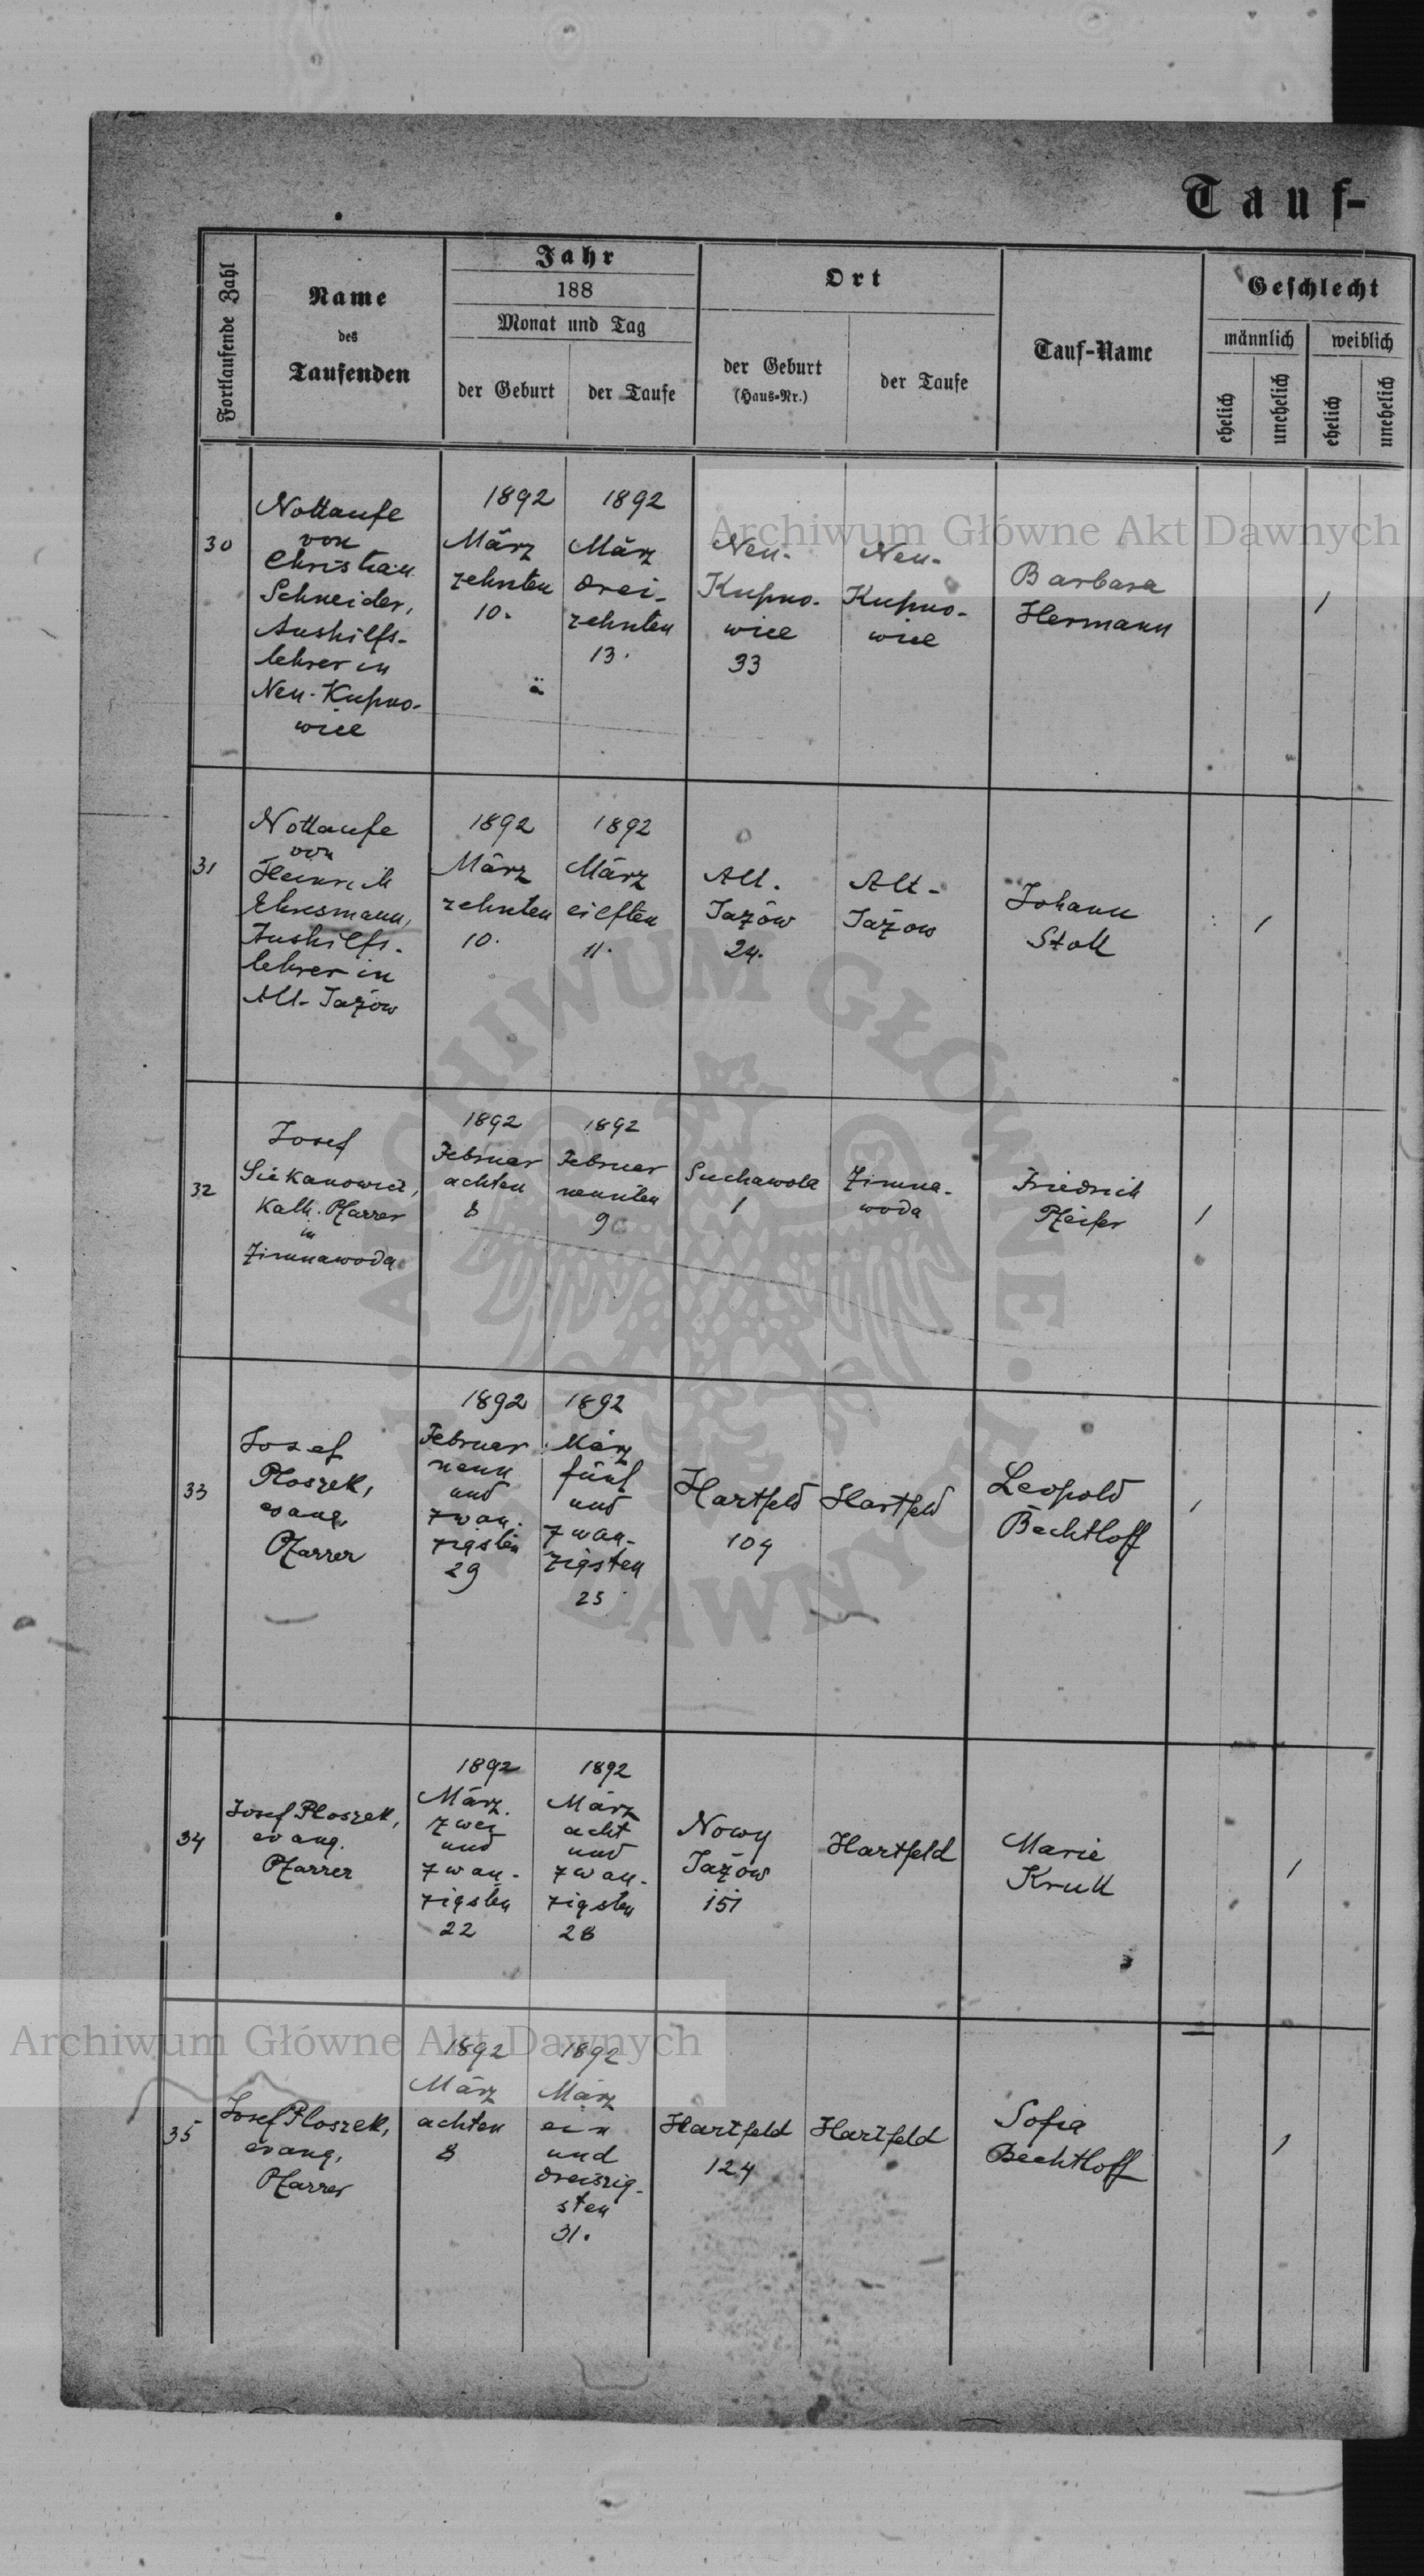 Tauf-
Fortlaufende Zahl
Name
des
Taufenden
Jahr
188
Monat und Tag
der Geburt
der Taufe
Ort
der Geburt
(Haus-Nr.)
der Taufe
Tauf-Name
Geschlecht
männlich
weiblich
ehelich
unehelich
ehelich
unehelich
30
Nottaufe
von
Christian
Schneider,
Aushilfs-
lehrer in
Neu-Kupno-
wice
1892
März
zehnten
10.
1892
März
drei-
zehnten
13.
Neu-
Kupno-
wice
33
Neu-
Kupno-
wice
Barbara
Hermann
1
31
Nottaufe
von
Heinrich
Ehresmann,
Aushilfs-
lehrer in
Alt-Jażow
1892
März
zehnten
10.
1892
März
eilften
11.
Alt-
Jażów
24.
Alt-
Jażow
Johann
Stoll
1
32
Josef
Siekanowicz,
Kath. Pfarrer
in
Zimnawoda
1892
Februar
achten
8
1892
Februar
neunten
9
Suchawola
1
Zimna-
woda
Friedrich
Pfeifer
1
33
Josef
Ploszek,
evang.
Pfarrer
1892
Februar
neun
und
zwan-
zigsten
29
1892
März
fünf
und
zwan-
zigsten
25
Hartfeld
104
Hartfeld
Leopold
Bechtloff
1
34
Josef Ploszek,
evang.
Pfarrer
1892
März
zwei
und
zwan-
zigsten
22
1892
März
acht
und
zwan-
zigsten
28
Nowy
Jażow
151
Hartfeld
Marie
Kruk
1
35
Josef Ploszek,
evang.
Pfarrer
1892
März
achten
8
1892
März
ein
und
dreiszig-
sten
31.
Hartfeld
124
Hartfeld
Sofia
Bechtloff
1
Archiwum Główne Akt Dawnych
ARCHIWUM GŁÓWNE AKT DAWNYCH
Archiwum Główne Akt Dawnych